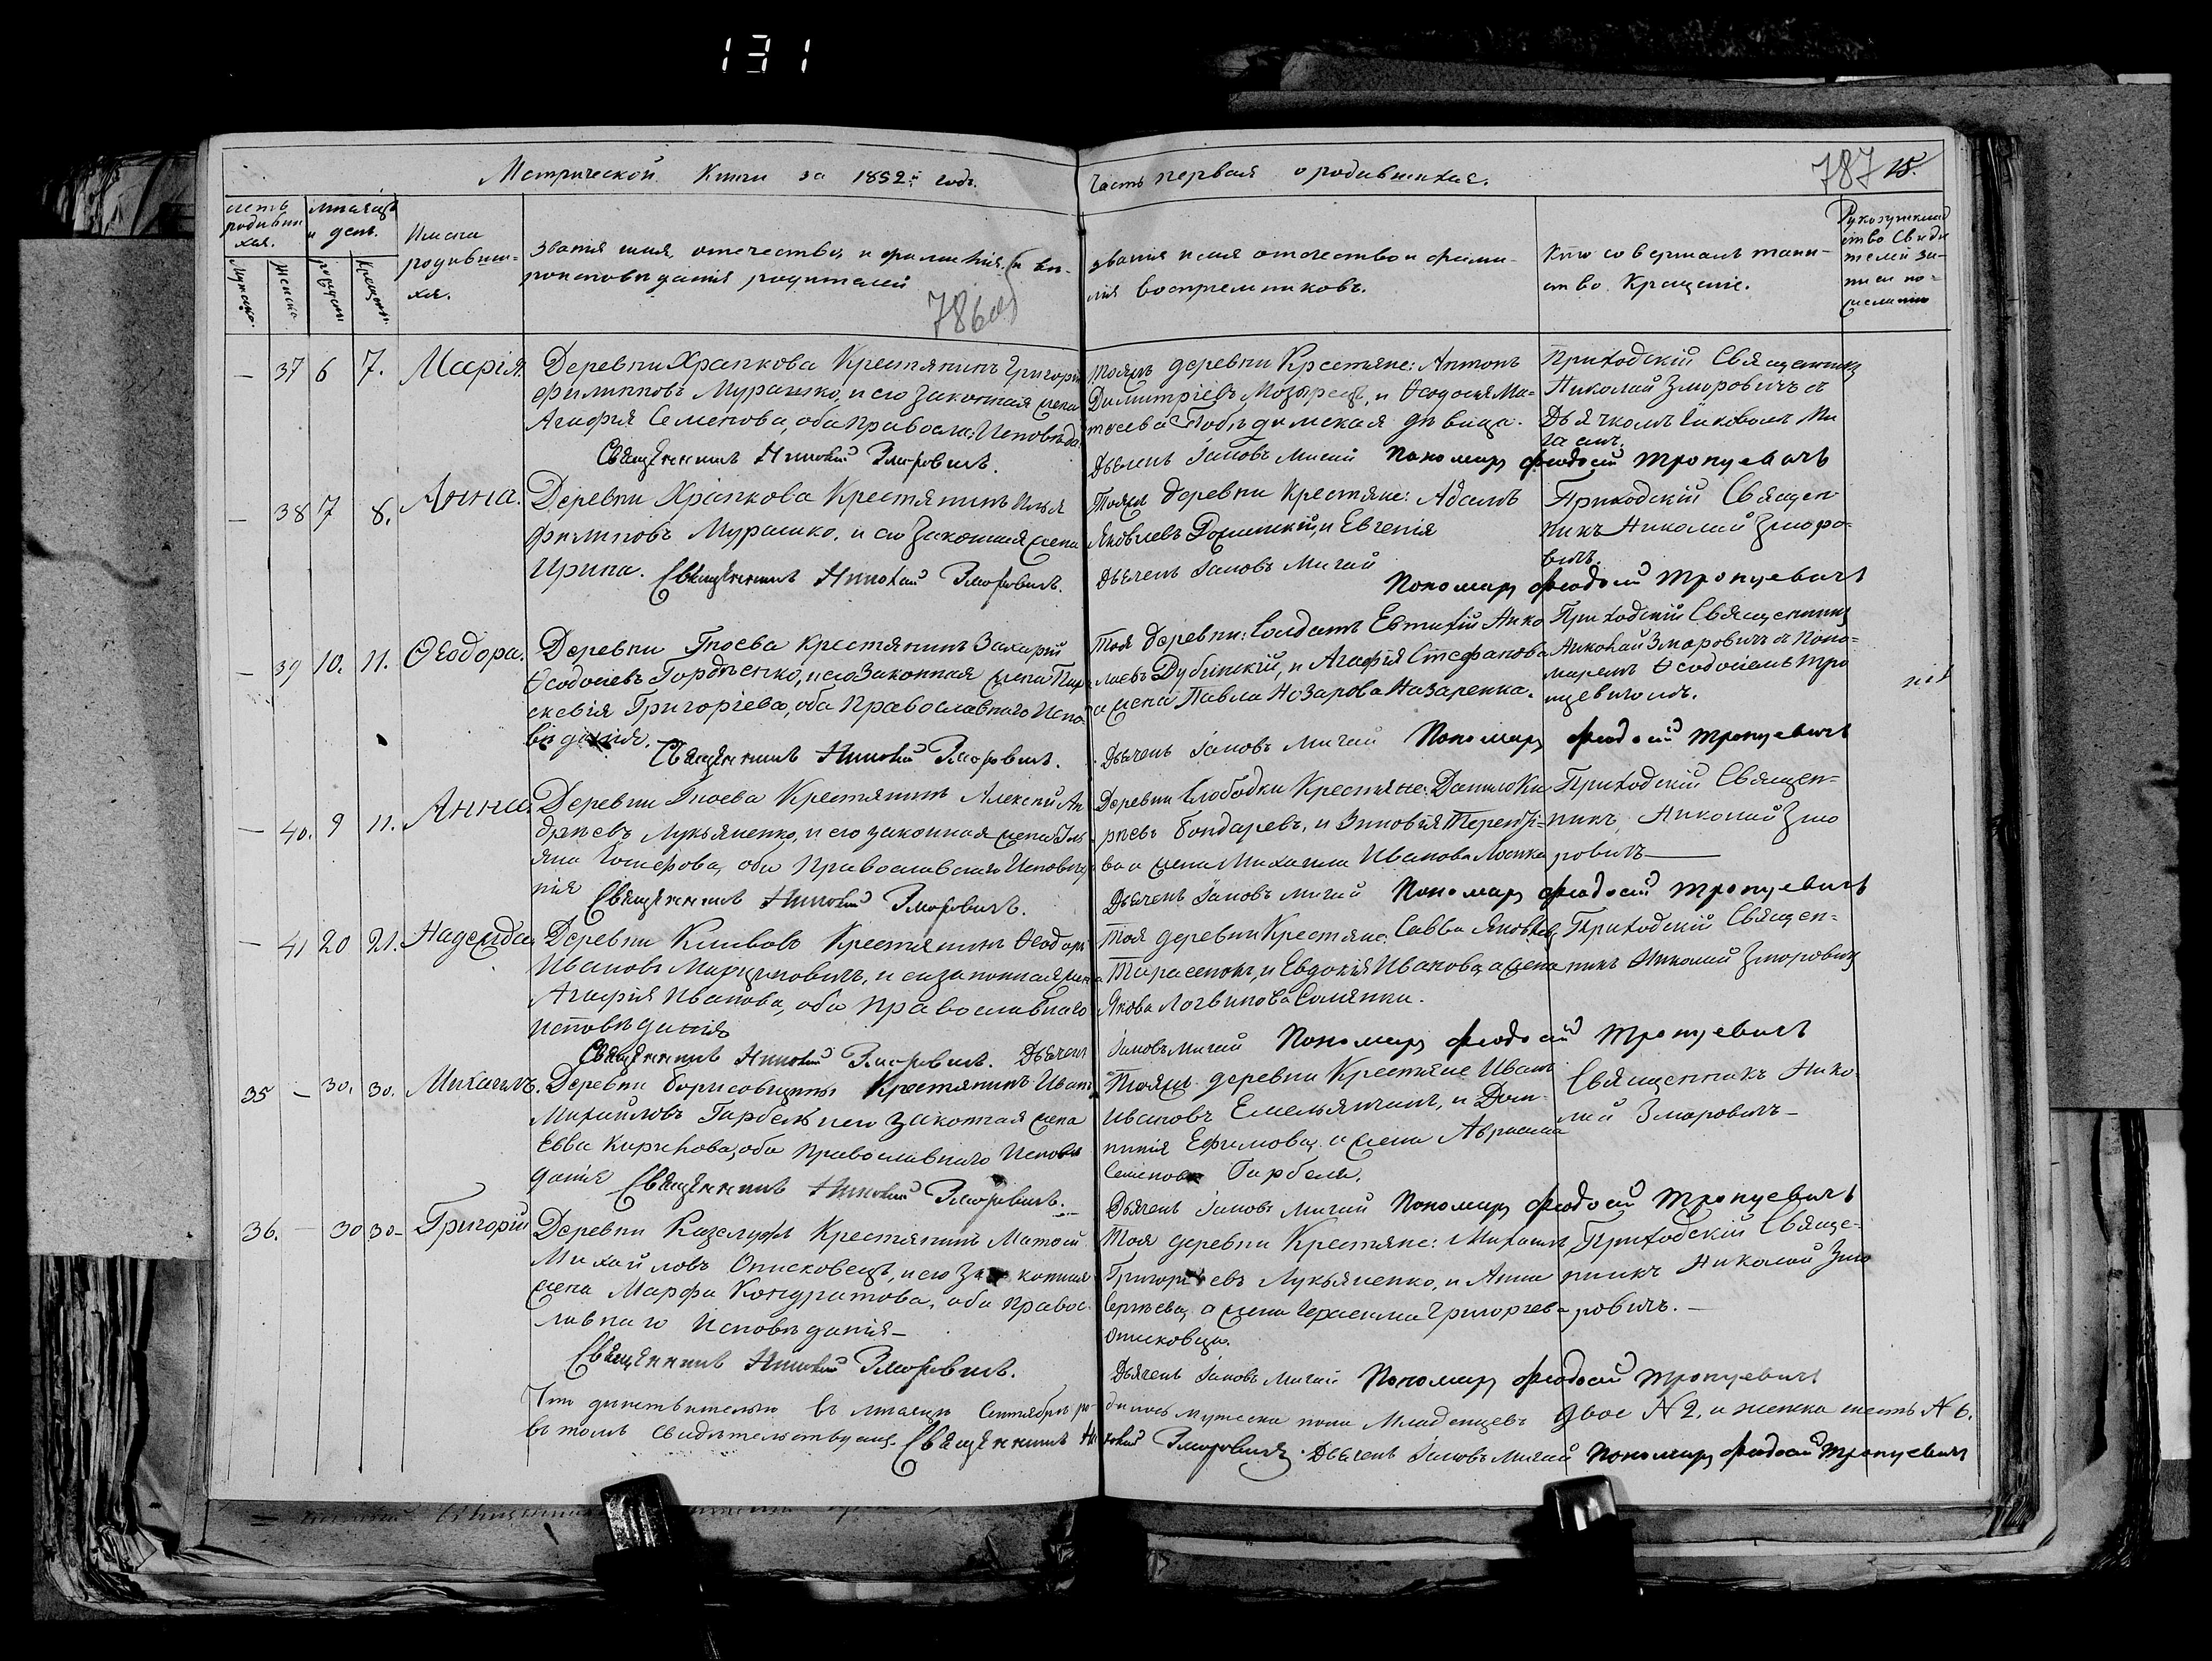 131
Метрической Книги за 1852й годъ.
Часть первая о родившихся.
787 15.
Счетъ родивших
хся.
Мѣсяцъ
и день.
Мужеска.
Женска.
рожденія
Крещенія.
Имена
родивши-
хся.
Званія имя, отечество, и фамилія, и ка-
роисповѣданія родителей
786об
Званія имя отечество и фами-
лія воспріемниковъ.
Кто совершалъ таин-
ство Крещенія.
Рукоприклад
ство Свидѣ
телей за-
писи по
желанію
— 37 6 7. Марія.
Деревни Храпкова Крестянинъ Григорій
Филиповъ Мурашко, и его Законная жена
Агафія Семенова, оба Правосл: Исповѣда
Священникъ Николай Зморовичъ.
Тояжъ деревни Крестяне: Антонъ
Димитріевъ и Ѳеодосія Ма-
тѳеева дѣвица.
Дьячекъ Іаковъ Мигай Пономарь Феодосій Тропцевичъ
Приходскій Священникъ
Николай Зморовичъ съ
Дьячкомъ Іаковомъ Ми
гаемъ.
— 38 7 8. Анна.
Деревни Храпкова Крестянинъ Илья
Филиповъ Мурашко, и его Законная жена
Ирина. Священникъ Николай Зморовичъ.
Тояжъ деревни Крестяне: Адамъ
Яковлевъ и Евгенія
Дьячекъ Іаковъ Мигай
Пономарь Феодосій Тропцевичъ
Приходскій Священ
никъ Николай Зморо-
вичъ.
— 39 10. 11. Ѳеодора.
Деревни Гноева Крестянинъ Захарій
Ѳеодосіевъ Гордѣенко, и его Законная жена Пар
скевія Григоріева, оба Православнаго Испо-
вѣданія.
Священникъ Николай Зморовичъ.
Тоя деревни: Солдатъ Евтихій Нико
лаевъ Дубинскій, и Агафія Стефанова
а жена Павла Назарова Назаренка.
Дьячекъ Іаковъ Мигай Пономарь Феодосій Тропцевичъ
Приходскій Священникъ
Николай Зморовичъ съ Поно-
маремъ Ѳеодосіемъ Тро
пцевичомъ.
— 40. 9 11. Анна.
Деревни Гноева Крестянинъ Алексѣй Ан
дреевъ Лукьяненко, и его законная жена Уль
яна Іосифова, оба Православнаго Исповѣда
нія Священникъ Николай Зморовичъ.
Деревни Слободки Крестяне: Данило Ки
реевъ Бондаревъ, и Зиновія Терентіе-
ва а жена Михаила Иванова
Дьячекъ Іаковъ Мигай Пономарь Феодосій Тропцевичъ
Приходскій Священ-
никъ, Николай Змо
ровичъ —
— 41 20 21. Надежда.
Деревни Крестянинъ Ѳеодоръ
Ивановъ Марциновичъ, и его законная жена
Агафія Иванова, оба Православнаго
исповѣданія
Священникъ Николай Зморовичъ. Дьячекъ
Тоя деревни Крестяне: Савва Яковлевъ
Тарасенокъ, и Евдокія Иванова, а жена
Якова Логвинова
Іаковъ Мигай Пономарь Феодосій Тропцевичъ
Приходскій Священ-
никъ Николай Зморовичъ
35 — 30. 30. Михаилъ.
Деревни Борисовщины Крестянинъ Иванъ
Михайловъ Гарбель и его Законная жена
Евва Кирихова, оба Православнаго Исповѣ
данія Священникъ Николай Зморовичъ.
Тояжъ деревни Крестяне Иванъ
Ивановъ Емельянчикъ, и Дом-
никія Ефимова, а жена Авраама
Семенова Гарбеля.
Дьячекъ Іаковъ Мигай Пономарь Феодосій Тропцевичъ
Священникъ Нико-
лай Зморовичъ —
36. — 30 30 — Григорій
Деревни Крестянинъ Матѳей
Михайловъ Описковецъ, и его Законная
жена Марфа Кондратова, оба Правос-
лавнаго Исповѣданія —
Священникъ Николай Зморовичъ.
Тоя деревни Крестяне: Михаилъ
Григорьевъ Лукьяненко, и Анна
Сергѣева, а жена Герасима Григорьева
Описковца.
Дьячекъ Іаковъ Мигай Пономарь Феодосій Тропцевичъ
Приходскій Священ-
никъ Николай Змо
ровичъ. —
Что дѣйствительно въ мѣсяцѣ Сентябрѣ ро-
дилось мужеска пола Младенцевъ двое № 2, и женска шесть № 6.
въ томъ свидѣтельствуемъ. Священникъ Ни
колай Зморовичъ. Дьячекъ Іаковъ Мигай Пономарь Феодосій Тропцевичъ